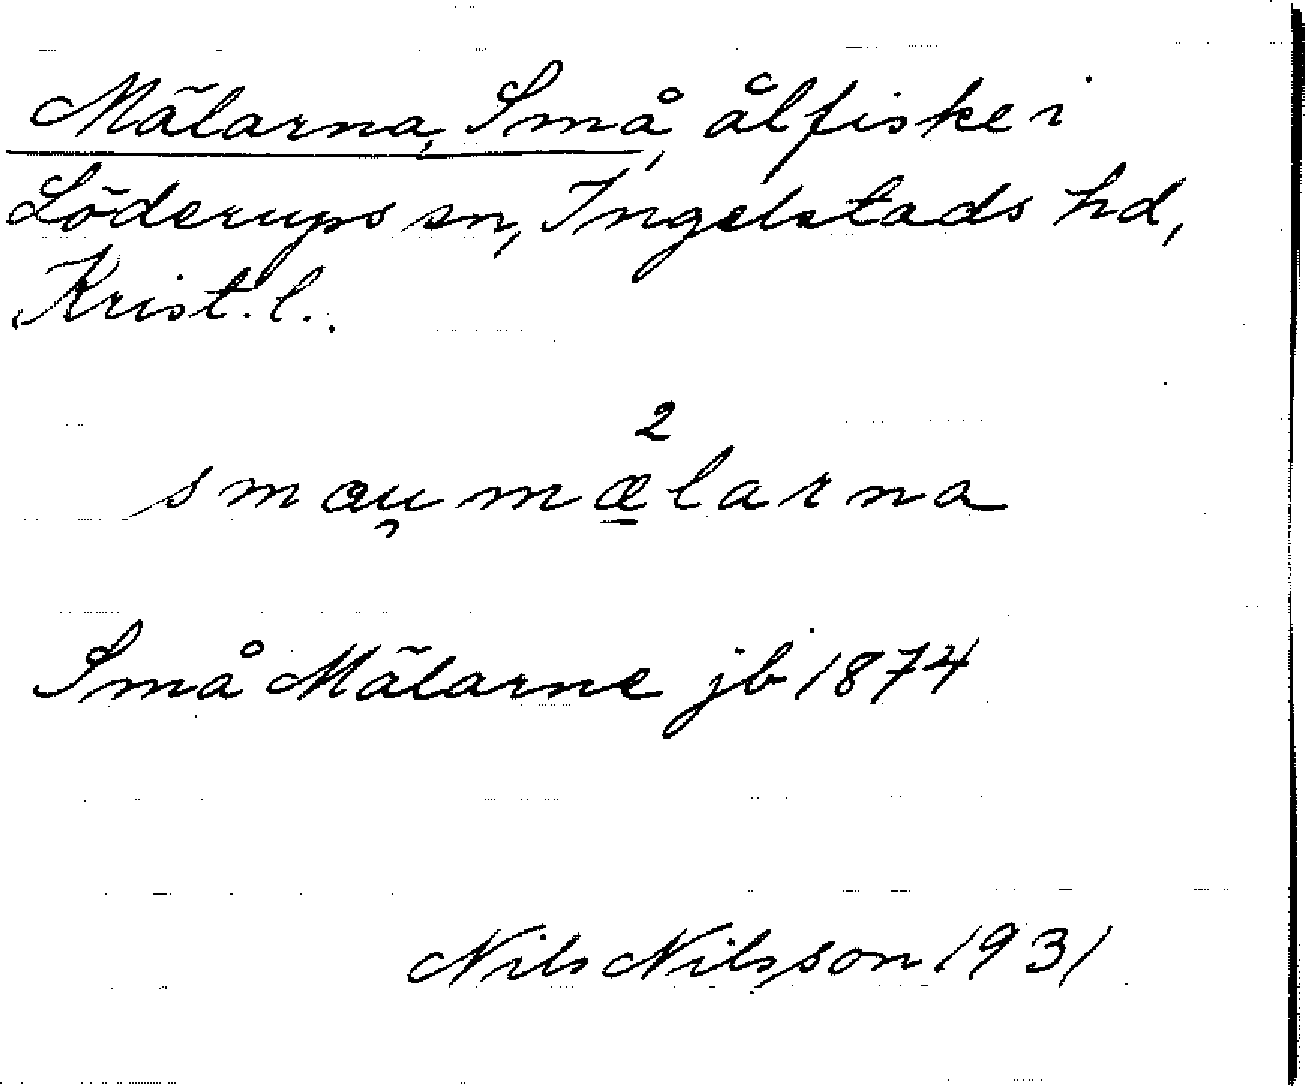 Mälarna, Små, ålfiske i
Löderups sn, Ingelstads hd,
Krist. l..
2
smæu̡mæ̱larna
Små Mälarne jb 1874
Nils Nilsson 1931